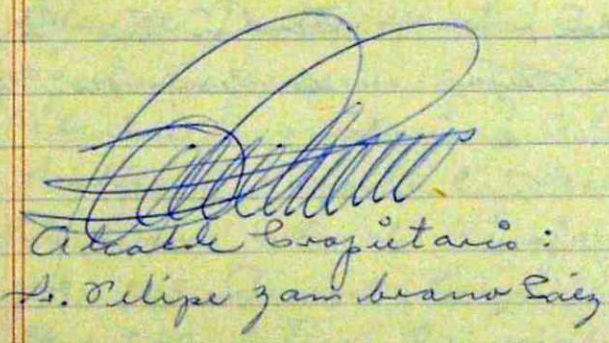 Alcalde Propietario:
Sr. Felipe Zambrano Sáez